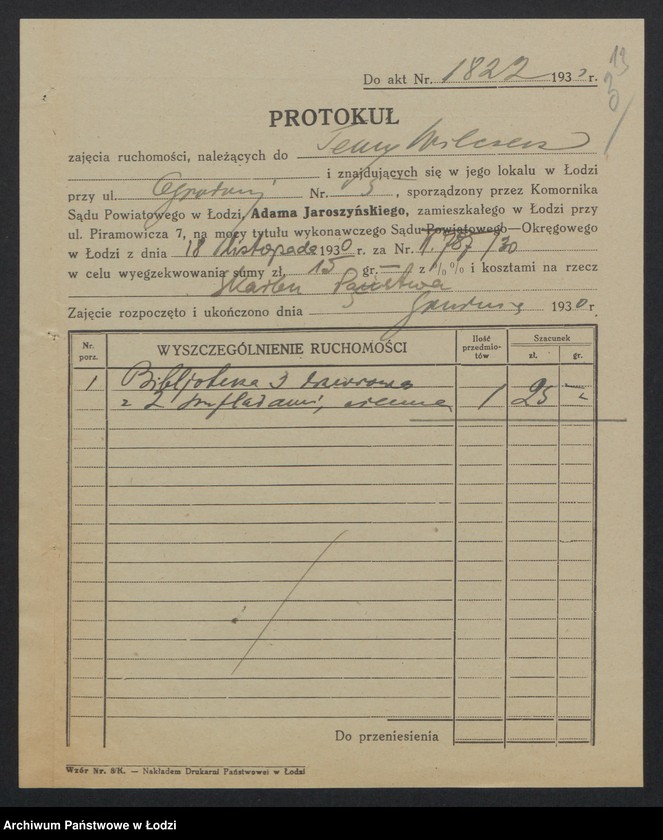 13
Do akt Nr. 1822 1930 r.
PROTOKUŁ
zajęcia ruchomości, należących do
i znajdujących się w jego lokalu w Łodzi
przy ul. Nr. 5, sporządzony przez Komornika
Sądu Powiatowego w Łodzi, Adama Jaroszyńskiego, zamieszkałego w Łodzi przy
ul. Piramowicza 7, na mocy tytułu wykonawczego Sądu Powiatowego—Okręgowego
w Łodzi z dnia 18 listopada 1930 r. za Nr. 787/30
w celu wyegzekwowania sumy zł. 15 gr. — z % % i kosztami na rzecz
Skarbu Państwa
Zajęcie rozpoczęto i ukończono dnia grudnia 1930 r
Nr. porz. WYSZCZEGÓLNIENIE RUCHOMOŚCI Ilość przedmiotów Szacunek zł. gr.
1 Bibljoteka 3 drzwiowa
z 2 szufladami, ciemna 1 25 —
Do przeniesienia
Wzór Nr. 8/K. — Nakładem Drukarni Państwowej w Łodzi
Archiwum Państwowe w Łodzi